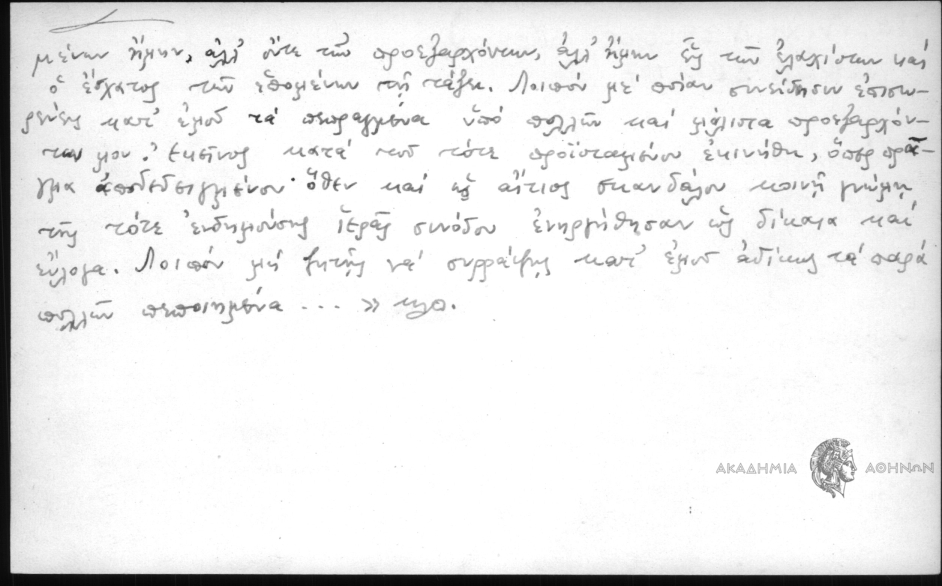 μένων ἤμην, ἀλλ' οὔτε τῶν προεξαρχόντων, ἀλλ' ἤμην εἷς τῶν ἐλαχίστων καὶ
ὁ ἔσχατος τῶν ἑπομένων τῇ τάξει. Λοιπὸν μὲ ποίαν συνείδησιν ἐπισω-
ρεύεις κατ' ἐμοῦ τὰ πεπραγμένα ὑπὸ πολλῶν καὶ μάλιστα προεξαρχόν-
των μου; Ἐκεῖνος κατὰ τοῦ τότε προϊσταμένου ἐκινήθη, ὅπερ πρᾶ-
γμα ἀποδεδειγμένον· ὅθεν καὶ ὡς αἴτιος σκανδάλου κοινῇ γνώμῃ
τῆς τότε ἐνδημούσης ἱερᾶς συνόδου ἐνηργήθησαν ὡς δίκαια καὶ
εὔλογα. Λοιπὸν μὴ ζητῇς νὰ συρράψῃς κατ' ἐμοῦ ἀδίκως τὰ παρὰ
πολλῶν πεποιημένα ... » κλπ.
ΑΚΑΔΗΜΙΑ ΑΘΗΝΩΝ